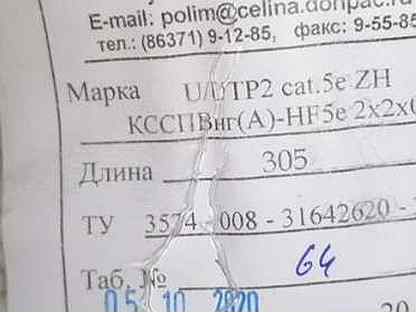 E-mail: polim@celina.donpac.
тел.: (86371) 9-12-85, факс: 9-55-85
Марка U/UTP2 cat.5e ZH
КССПВнг(А)-HF5e 2x2x
Длина 305
ТУ 3574 - 008 - 31642620 -
Таб. № 64
05 10 2020
20